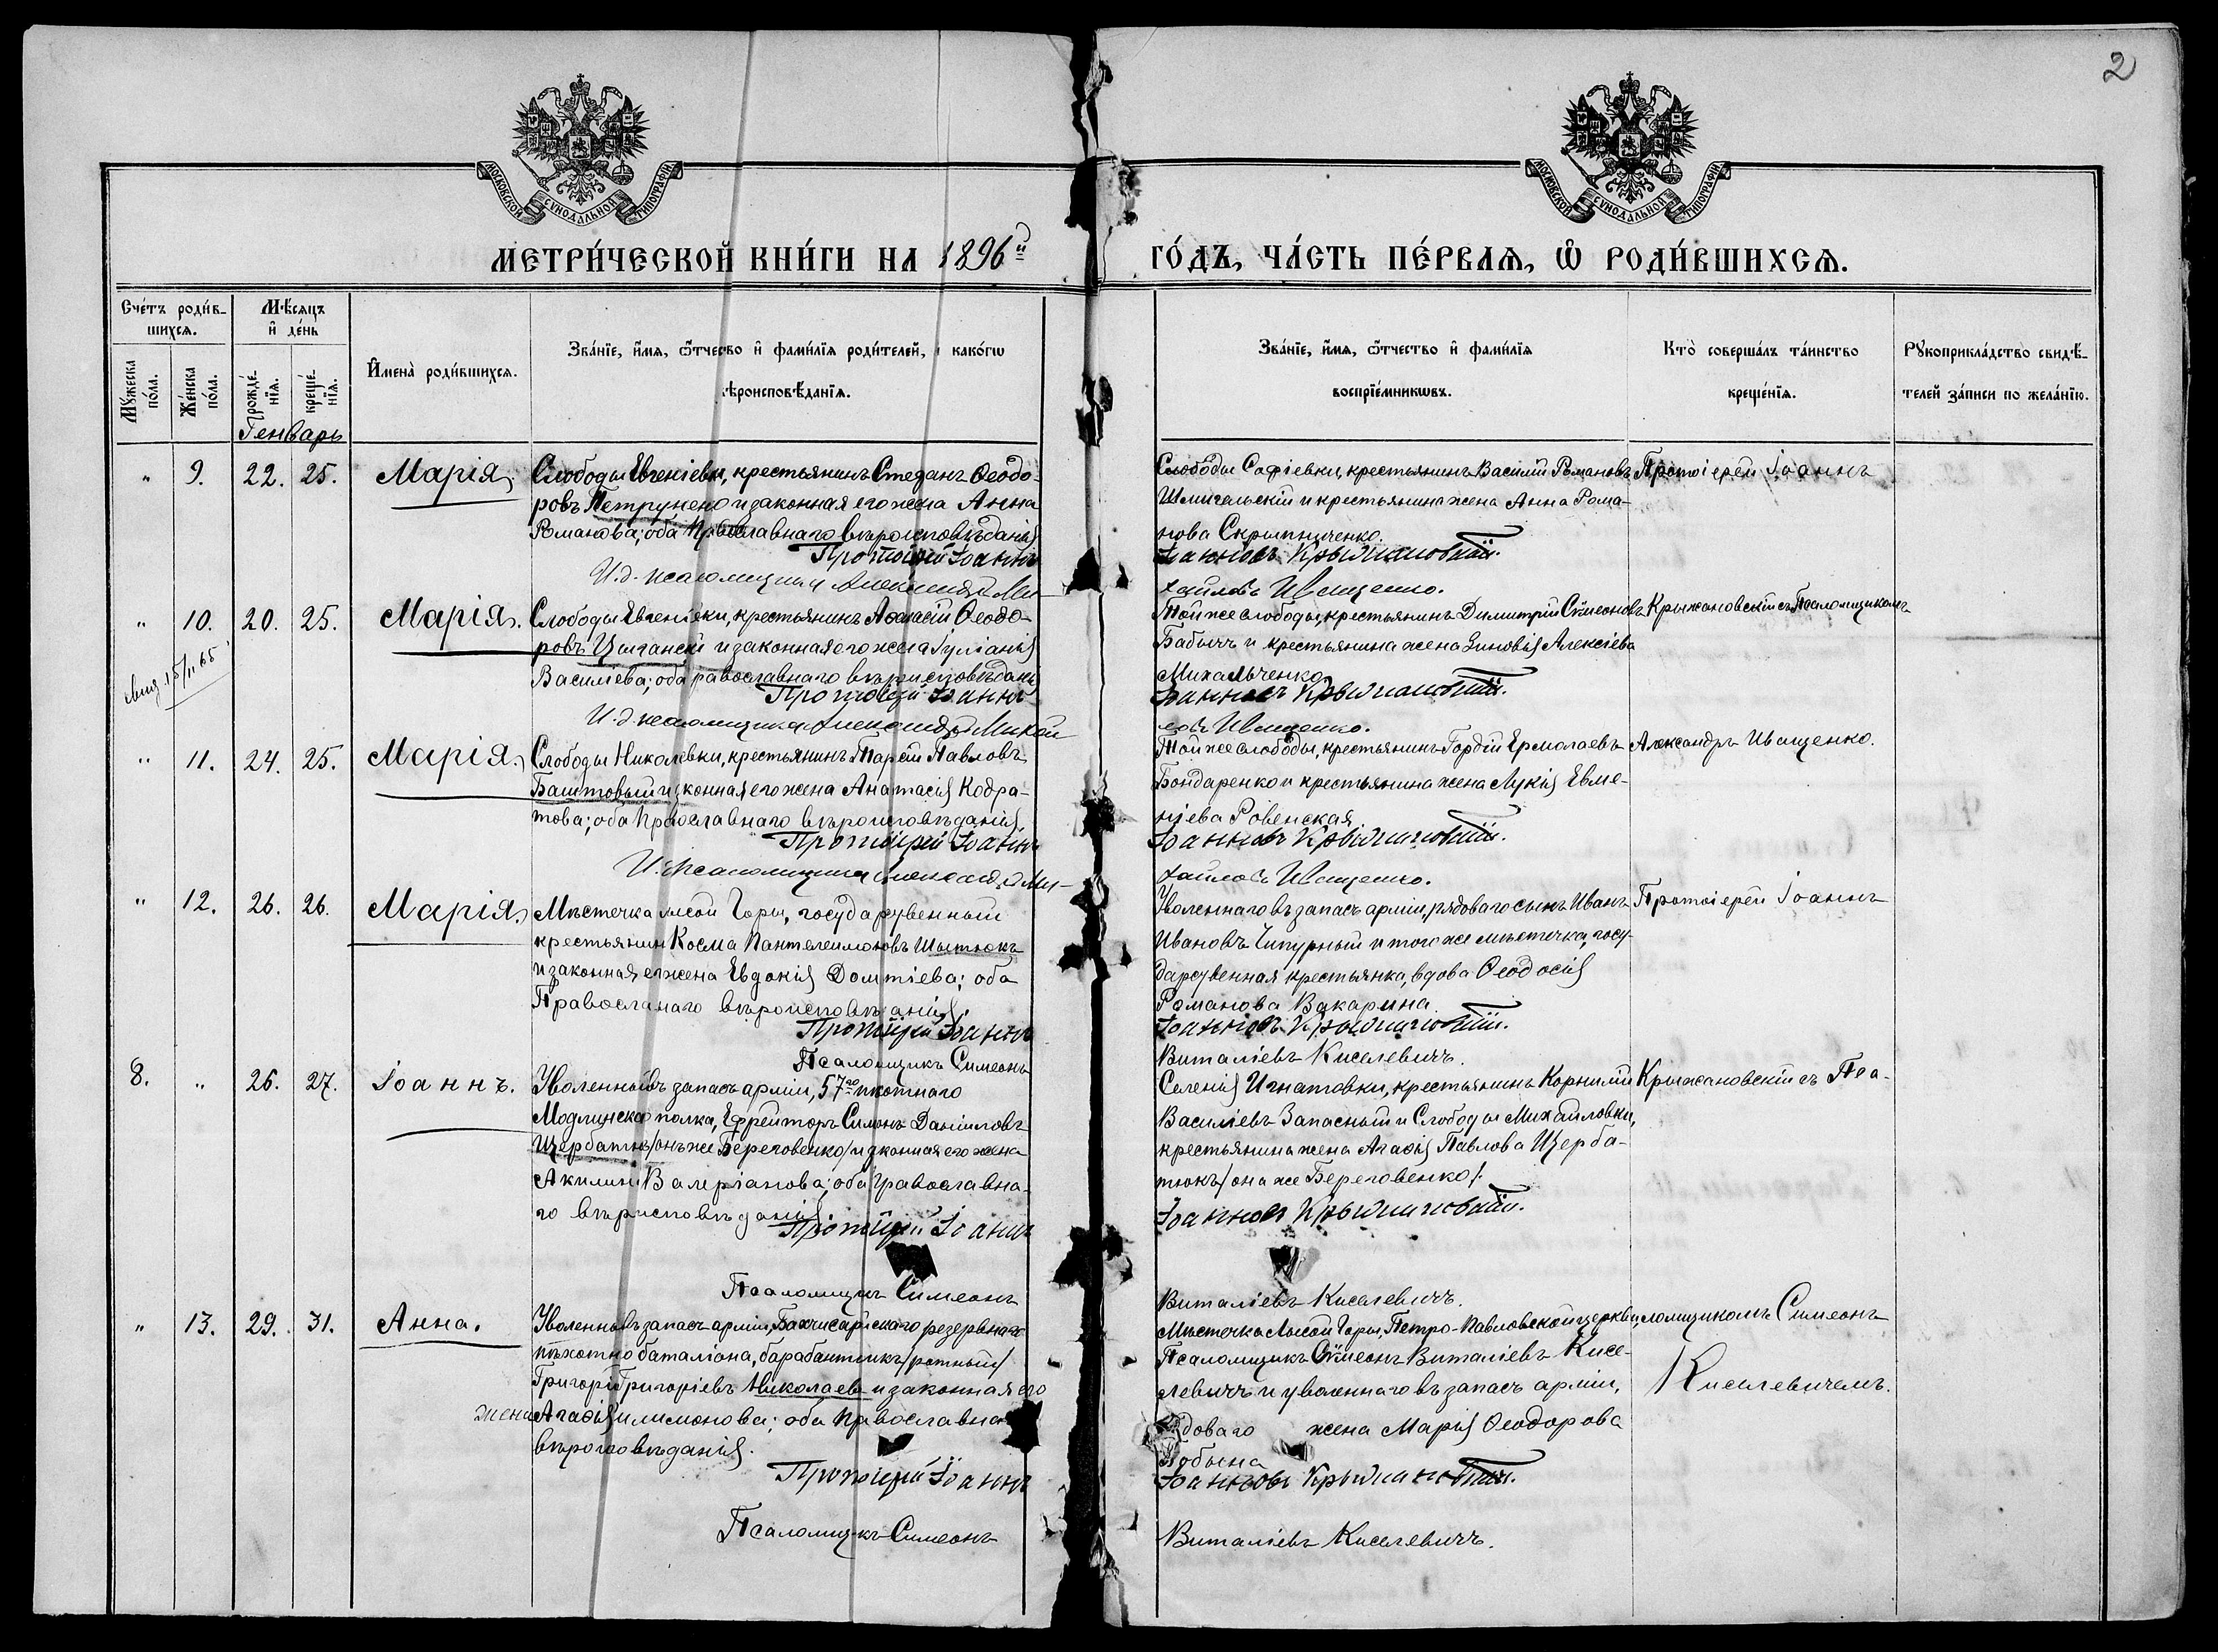 2
МОСКОВСКОЙ СѴНОДАЛЬНОЙ ТИПОГРАФІИ
МОСКОВСКОЙ СѴНОДАЛЬНОЙ ТИПОГРАФІИ
МЕТРИ́ЧЕСКОЙ КНИ́ГИ НА 1896й
ГО́ДЪ, ЧА́СТЬ ПЕ́РВАѦ, Ѡ РОДИ́ВШИХСѦ.
Сче́тъ роди́в-
шихсѧ.
Мѣ́сяцъ
и де́нь
Мꙋ́жеска по́ла.
Же́нска по́ла.
рожде́-нїѧ.
креще́-нїѧ.
Имена̀ роди́вшихсѧ.
Зва́нїе, и́мѧ, ѻ́тчество и фами́лїѧ роди́телей, и како́гѡ
вѣроисповѣ́данїѧ.
Зва́нїе, и́мѧ, ѻ́тчество и фами́лїѧ
воспрїе́мникѡвъ.
Кто̀ соверша́лъ та́инство
креще́нїѧ.
Рꙋкоприкла́дство свидѣ́-
телей за́писи по жела́нїю.
Генварь
" 9. 22. 25. Марія.
Слободы Евгеніевки, крестьянинъ Стефанъ Ѳеодо-
ровъ Петрунено и законная его жена Анна
Романова; оба Православнаго вѣроисповѣданія
Протоіерей Іоаннъ
И.д. псаломщика Александръ Ми-
Слободы Софіевки, крестьянинъ Василій Романовъ
Шмигальскій и крестьянина жена Анна Рома-
нова Скрыпниченко.
Іоанновъ Крыжановскій.
хайловъ Иващенко.
Протоіерей Іоаннъ
" 10. 20. 25. Марія.
Слободы Евгеніевки, крестьянинъ Аѳанасій Ѳеодо-
ровъ Цыганскій и законная его жена Іуліанія
Василіева; оба православнаго вѣроисповѣданія
Протоіерей Іоаннъ
И.д. псаломщика Александръ Михай
Той же слободы, крестьянинъ Димитрій Сѵмеоновъ
Бабичъ и крестьянина жена Зиновія Алексіева
Михальченко
Іоанновъ Крыжановскій.
ловъ Иващенко.
Крыжановскій съ Псаломщикомъ
" 11. 24. 25. Марія.
Слободы Николаевки, крестьянинъ Тарасій Павловъ
Баштовый и законная его жена Анастасія Кодра-
това; оба Православнаго вѣроисповѣданія
Протоіерей Іоаннъ
И.д. псаломщика Александръ Ми-
Той же слободы, крестьянинъ Гордій Ермолаевъ
Бондаренко и крестьянина жена Лукія Евме-
ніева Ровенская
Іоанновъ Крыжановскій.
хайловъ Иващенко.
Александръ Иващенко.
" 12. 26. 26. Марія.
Мѣстечка Лысой Горы, государственный
крестьянинъ Косма Пантелеимоновъ
и законная его жена Евдокія; оба
Православнаго вѣроисповѣданія.
Протоіерей Іоаннъ
Псаломщикъ Симеонъ
Уволеннаго въ запасъ арміи, рядоваго сынъ Иванъ
Ивановъ Чипурный и того же мѣстечка, госу-
дарственная крестьянка, вдова Ѳеодосія
Романова Вакарина.
Іоанновъ Крыжановскій.
Виталіевъ Киселевичъ.
Протоіерей Іоаннъ
8. " 26. 27. Іоаннъ.
Уволенный въ запасъ арміи, 57го пѣхотнаго
Модлинскаго полка, Ефрейторъ Симонъ Даниловъ
Щербатюкъ /онъ же Береговенко/ и законная его жена
Акилина Валеріанова; оба Православна-
го вѣроисповѣданія
Протоіерей Іоаннъ
Псаломщикъ Симеонъ
Селенія Игнатовки, крестьянинъ Корнилій
Василіевъ Запасный и Слободы Михайловки,
крестьянина жена Агафія Павлова Щерба-
тюкъ /она же Береговенко/.
Іоанновъ Крыжановскій.
Виталіевъ Киселевичъ.
Крыжановскій съ Пса-
" 13. 29. 31. Анна.
Уволенный въ запасъ арміи, Бахчисарайскаго резервнаго
пѣхотнаго баталіона, барабанщикъ /ротный/
Григорій Григоріевъ Николаевъ и законная его
жена Агафія Филимонова; оба Православнаго
вѣроисповѣданія.
Протоіерей Іоаннъ
Псаломщикъ Симеонъ
Мѣстечка Лысой Горы, Петро-Павловской церкви,
Псаломщикъ Сѵмеонъ Виталіевъ Кисе-
левичъ и уволеннаго въ запасъ арміи,
рядоваго жена Марія Ѳеодорова
Іоанновъ Крыжановскій.
Виталіевъ Киселевичъ.
ломщикомъ Симеонъ
Киселевичемъ.